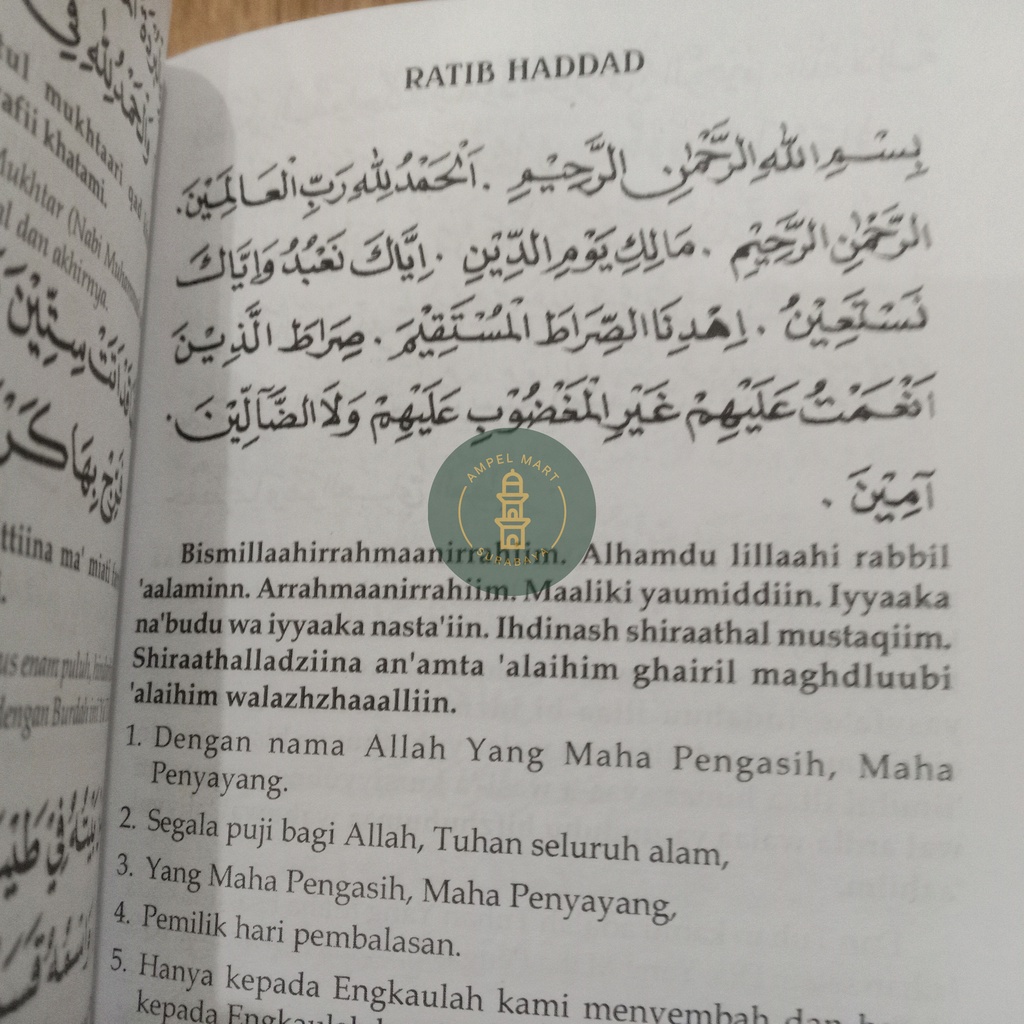 RATIB HADDAD
بِسْمِ اللهِ الرَّحْمٰنِ الرَّحِيْمِ . اَلْحَمْدُ لِلّٰهِ رَبِّ الْعَالَمِيْنَ.
الرَّحْمٰنِ الرَّحِيْمِ . مَالِكِ يَوْمِ الدِّيْنِ . اِيَّاكَ نَعْبُدُ وَاِيَّاكَ
نَسْتَعِيْنُ . اِهْدِنَا الصِّرَاطَ الْمُسْتَقِيْمَ . صِرَاطَ الَّذِيْنَ
اَنْعَمْتَ عَلَيْهِمْ غَيْرِ الْمَغْضُوْبِ عَلَيْهِمْ وَلَا الضَّآلِّيْنَ .
آمِيْنَ .
AMPEL MART
SURABAYA
Bismillaahirrahmaanirrahiim. Alhamdu lillaahi rabbil
'aalaminn. Arrahmaanirrahiim. Maaliki yaumiddiin. Iyyaaka
na'budu wa iyyaaka nasta'iin. Ihdinash shiraathal mustaqiim.
Shiraathalladziina an'amta 'alaihim ghairil maghdluubi
'alaihim walazhzhaaalliin.
1. Dengan nama Allah Yang Maha Pengasih, Maha
Penyayang.
2. Segala puji bagi Allah, Tuhan seluruh alam,
3. Yang Maha Pengasih, Maha Penyayang,
4. Pemilik hari pembalasan.
5. Hanya kepada Engkaulah kami menyembah dan
kepada
mukhtaari qad
khatami.
Mukhtar (Nabi
dan akhirnya.
سِتِّيْنَ
بِهَا
ma' miati
enam puluh,
dengan Burdah
فِيْ